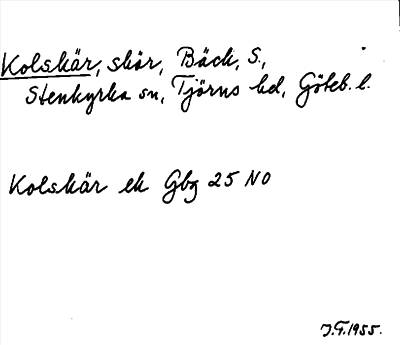 Kolskär, skär, Bäck, S.,
Stenkyrka sn, Tjörns hd, Göteb. l.
Kolskär ek Gbg 25 NO
J.G.1955.